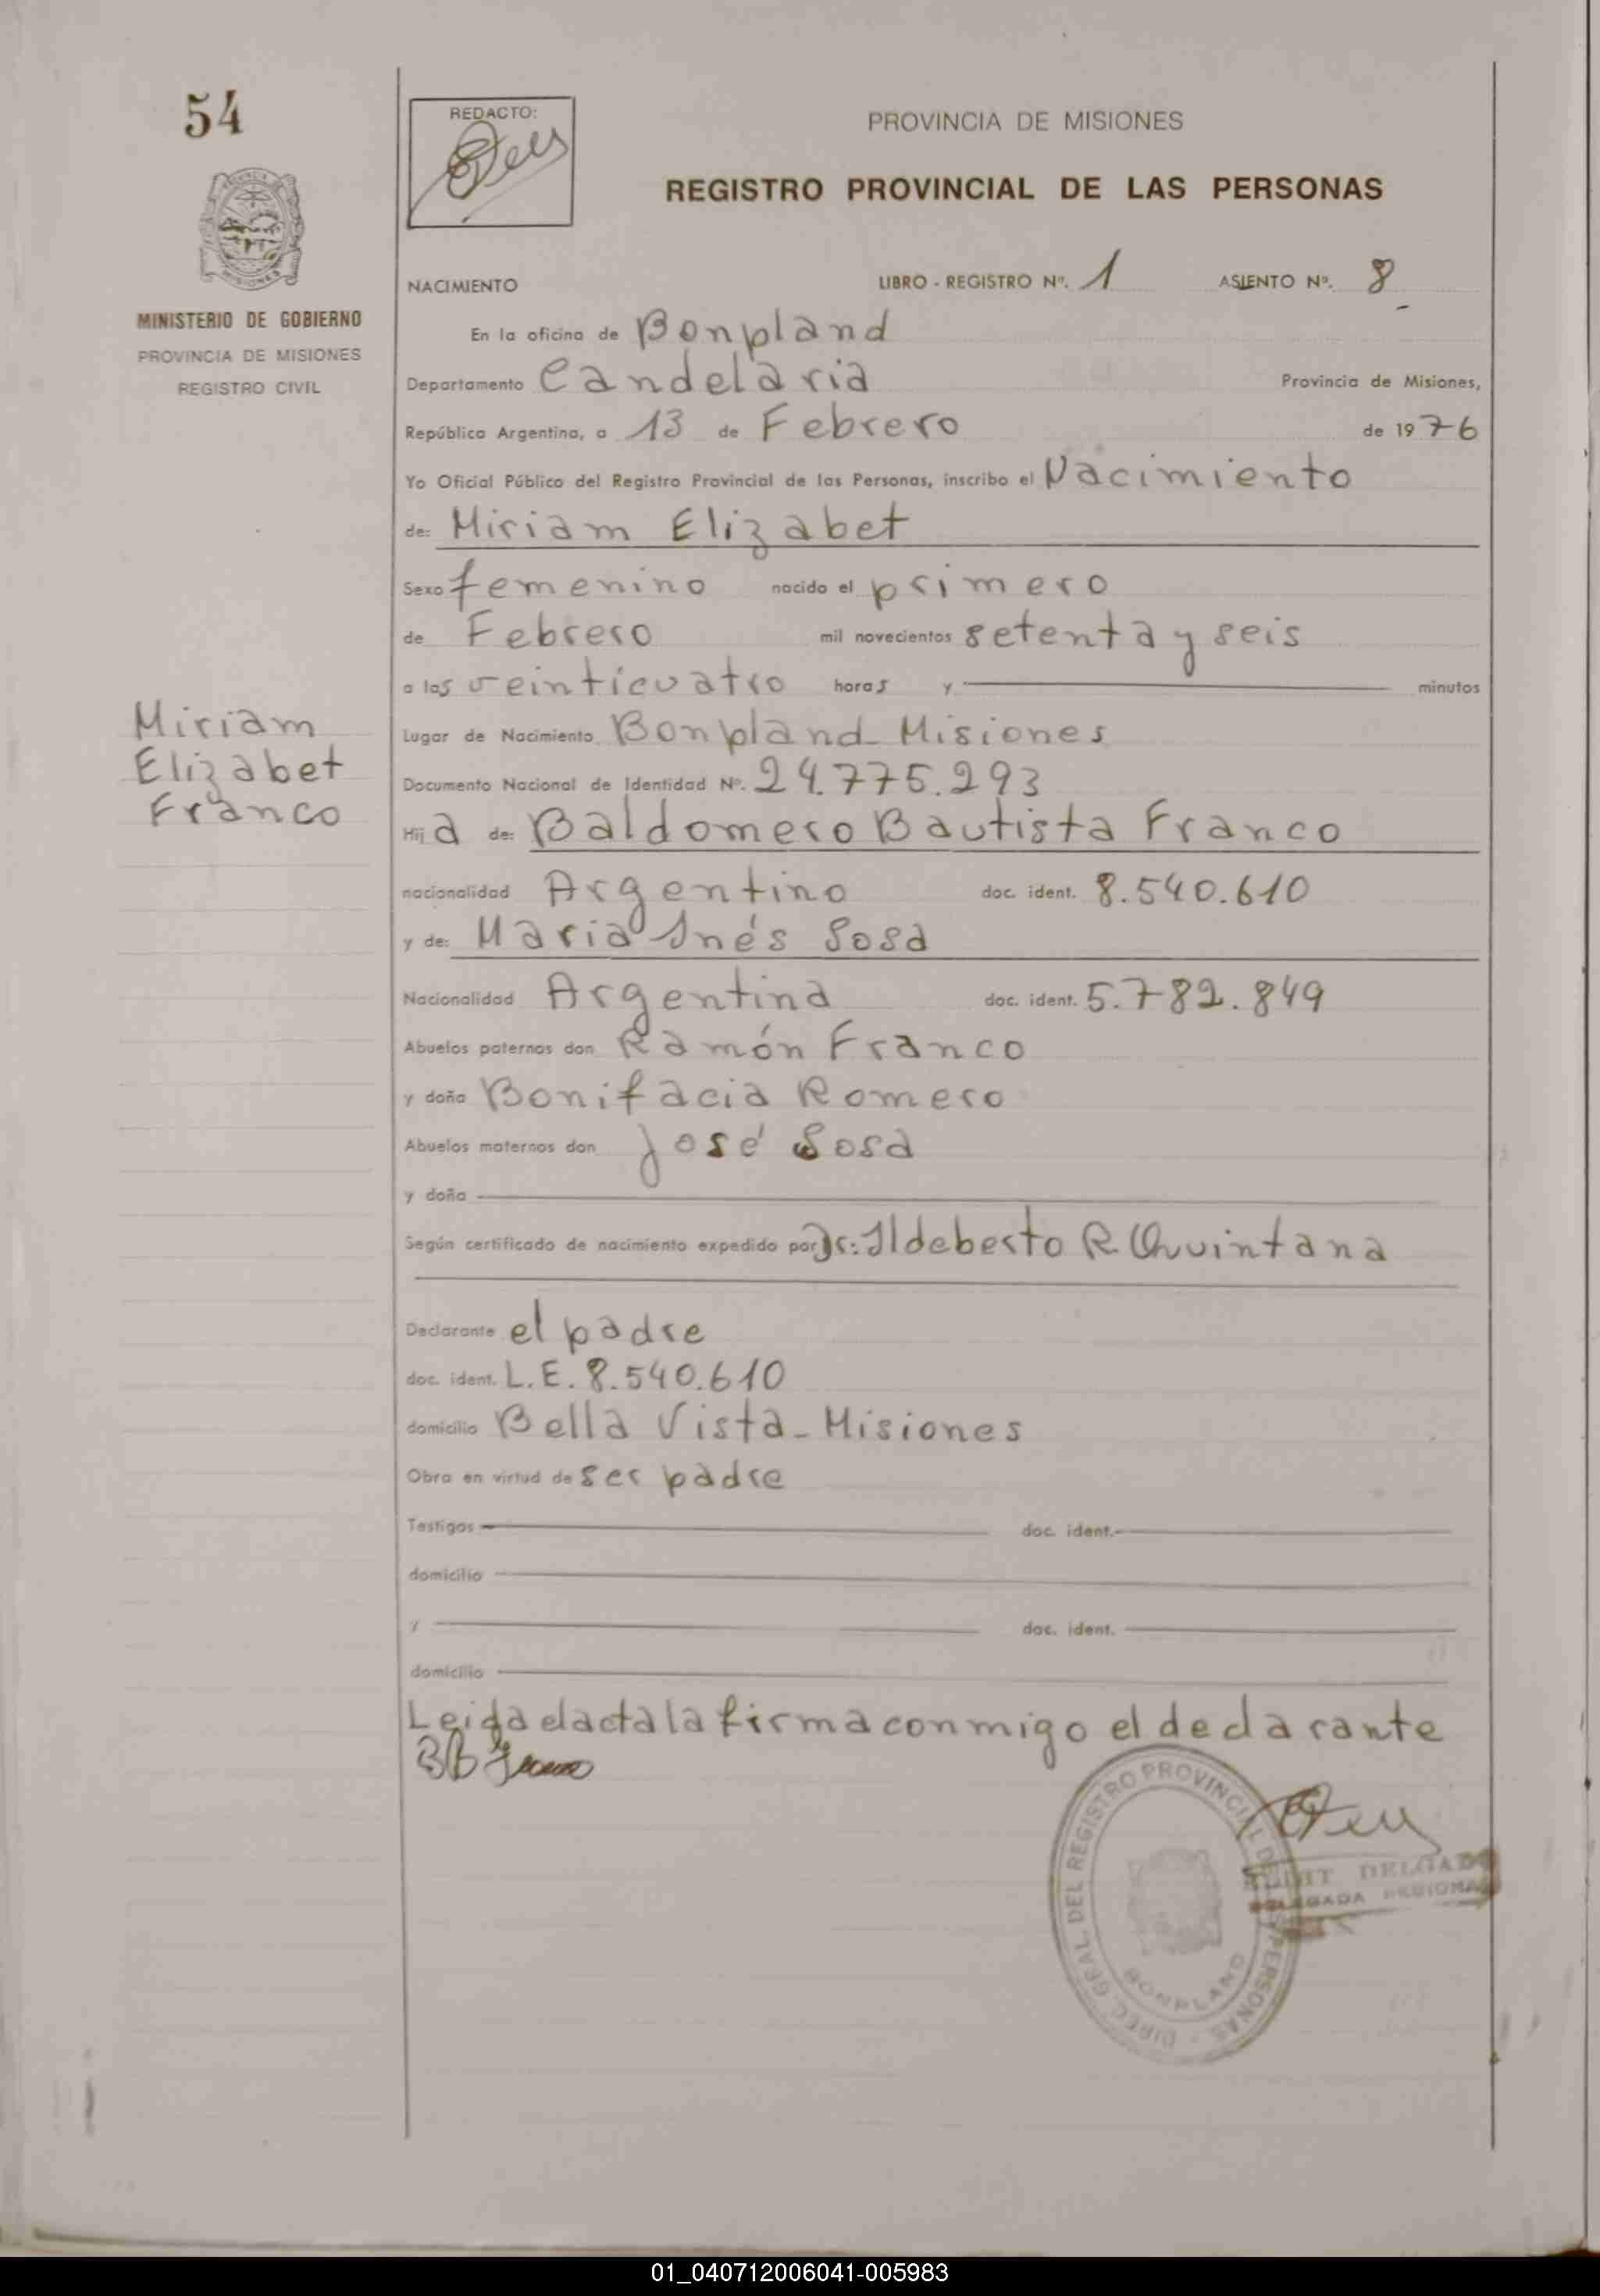 54
REDACTO:
PROVINCIA DE MISIONES
REGISTRO PROVINCIAL DE LAS PERSONAS
MISIONES
MINISTERIO DE GOBIERNO
PROVINCIA DE MISIONES
REGISTRO CIVIL
NACIMIENTO LIBRO - REGISTRO Nº. 1 ASIENTO Nº. 8
En la oficina de Bonpland
Departamento Candelaria Provincia de Misiones,
República Argentina, a 13 de Febrero de 1976
Yo Oficial Público del Registro Provincial de las Personas, inscribo el Nacimiento
de: Miriam Elizabet
Sexo femenino nacido el primero
de Febrero mil novecientos setenta y seis
a las veinticuatro horas y minutos
Miriam
Elizabet
Franco
Lugar de Nacimiento Bonpland - Misiones
Documento Nacional de Identidad Nº. 24.775.293
Hija de: Baldomero Bautista Franco
nacionalidad Argentino doc. ident. 8.540.610
y de: Maria Inés Sosa
Nacionalidad Argentina doc. ident. 5.782.849
Abuelos paternos don Ramón Franco
y doña Bonifacia Romero
Abuelos maternos don José Sosa
y doña
Según certificado de nacimiento expedido por Dr: Ildeberto R. Quintana
Declarante el padre
doc. ident. L.E. 8.540.610
domicilio Bella Vista - Misiones
Obra en virtud de ser padre
Testigos doc. ident.
domicilio
y doc. ident.
domicilio
Leida el acta la firma conmigo el declarante
DIREC. GRAL. DEL REGISTRO PROVINCIAL DE LAS PERSONAS - BONPLAND
DELGADO
DELEGADA REGIONAL
01_040712006041-005983